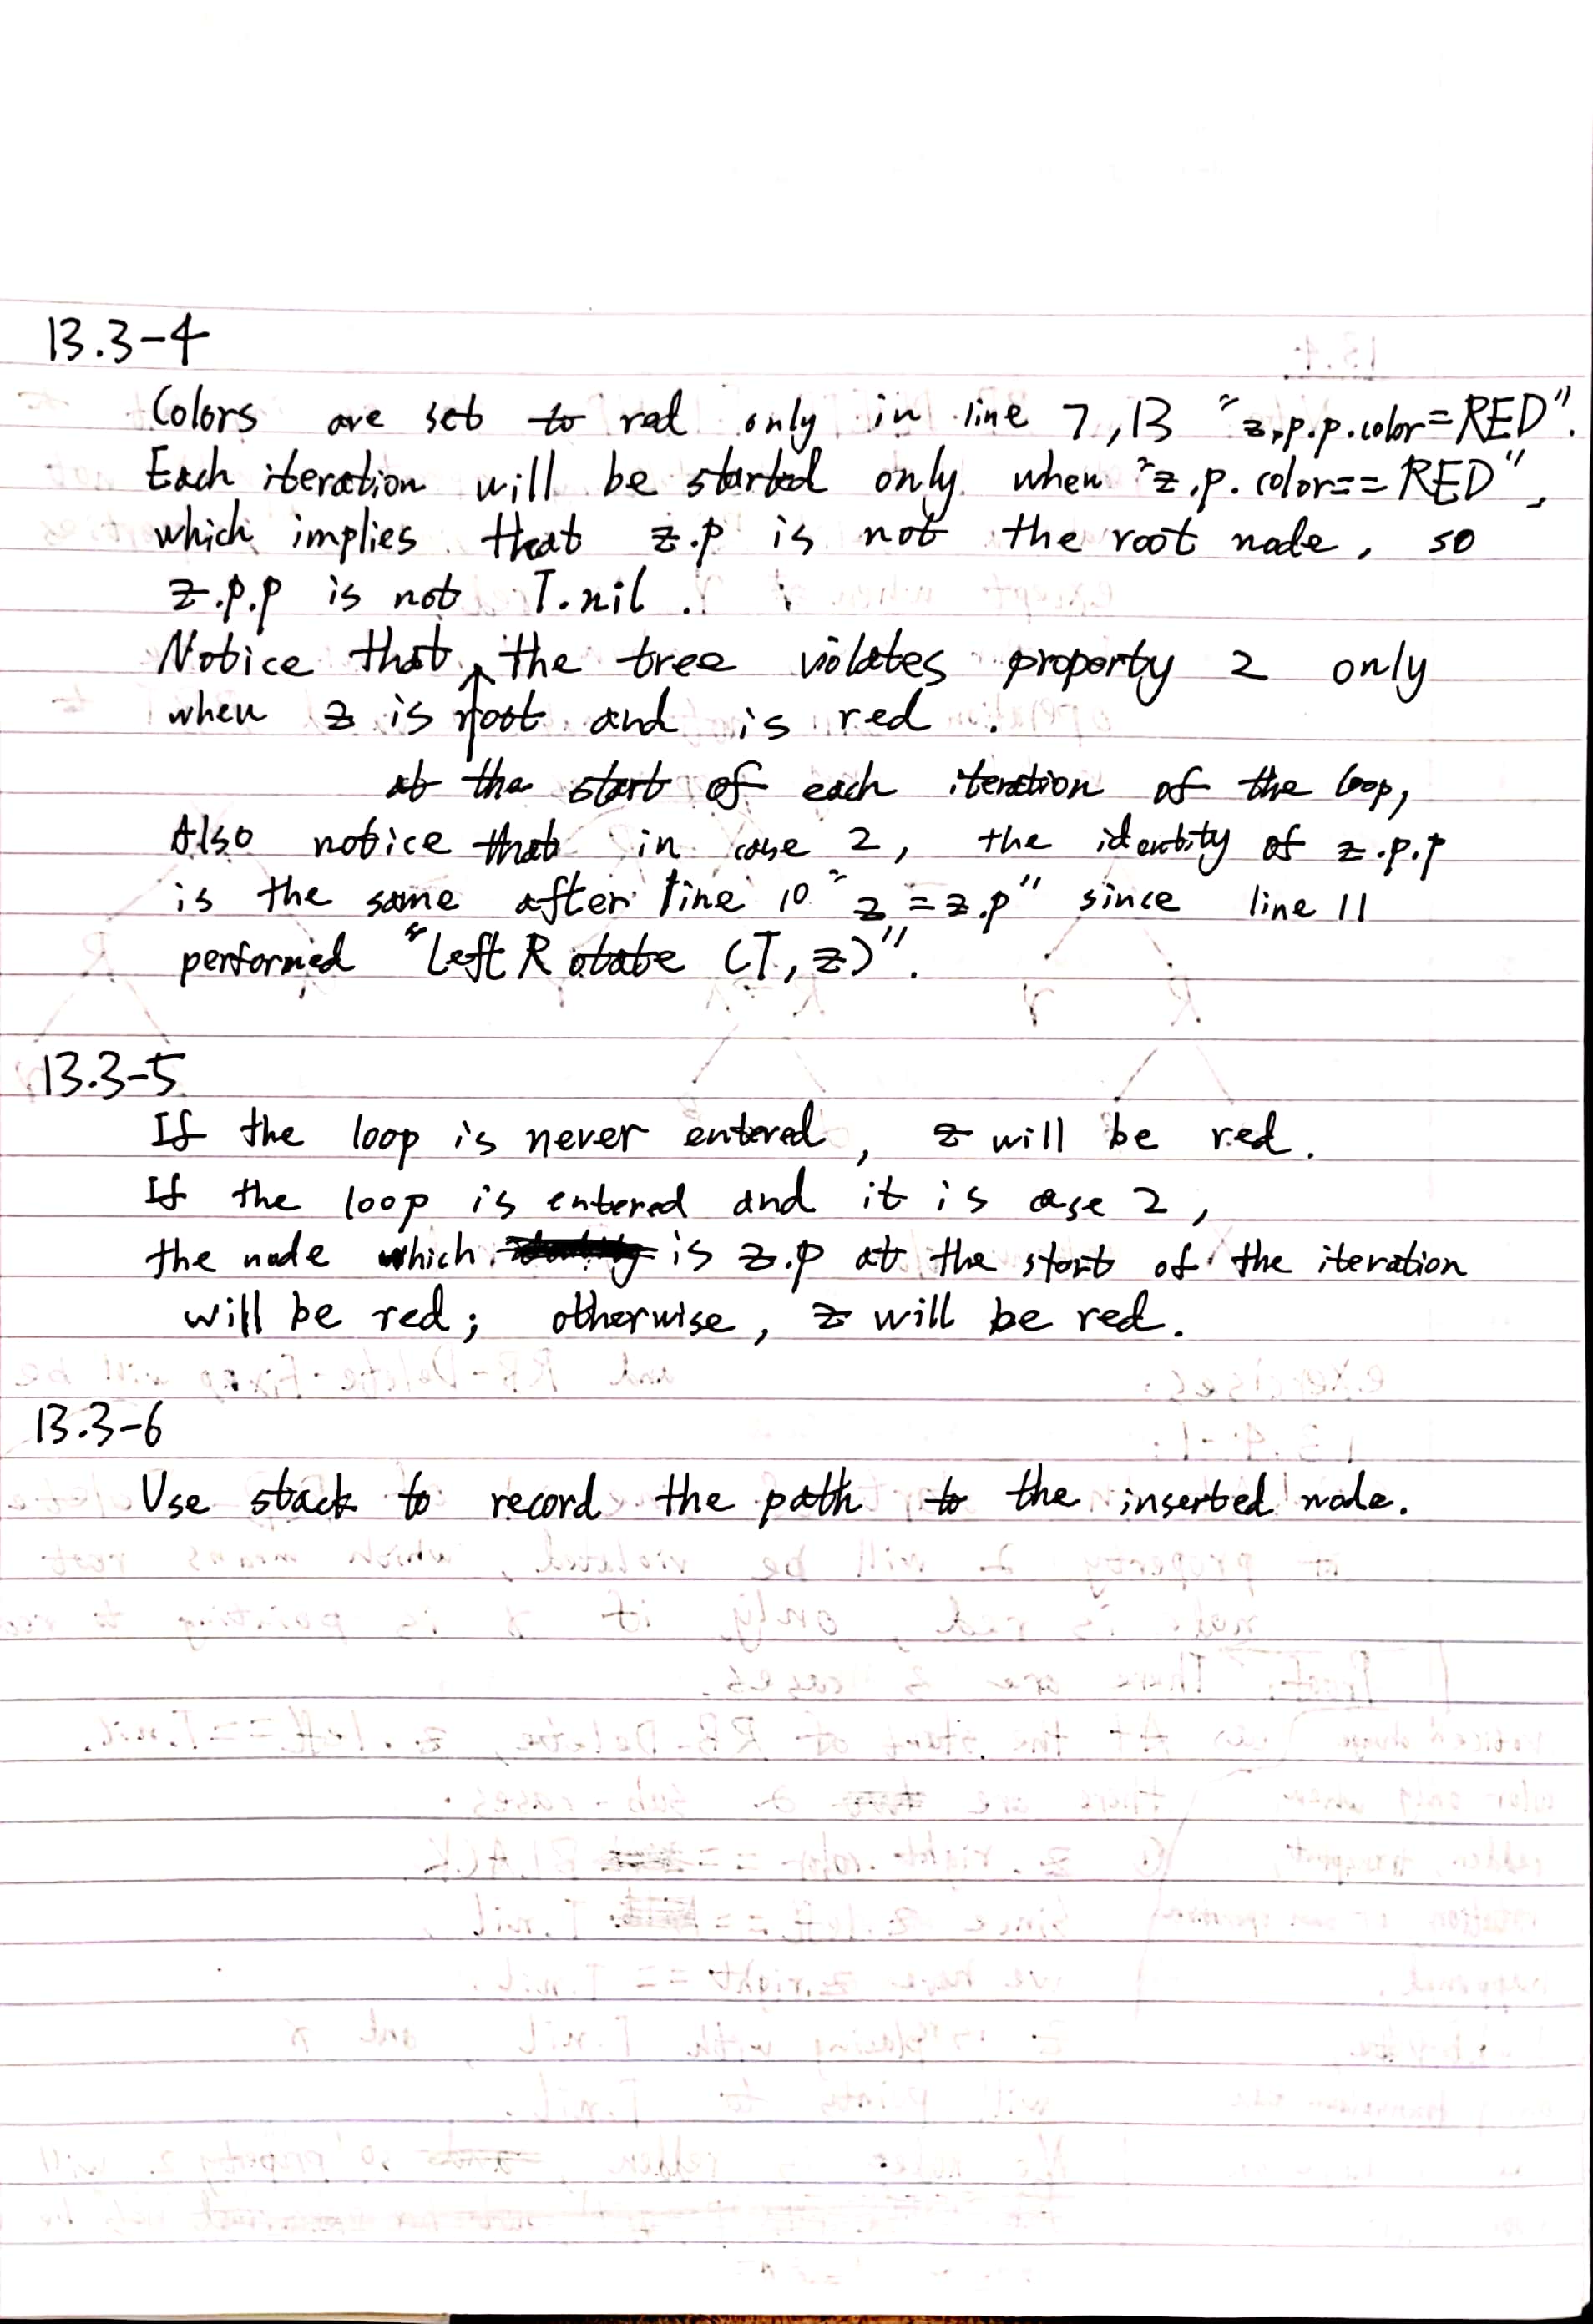 13.3-4
Colors are set to red only in line 7, 13 "z.p.p.color=RED".
Each iteration will be started only when "z.p.color==RED",
which implies that z.p is not the root node, so
z.p.p is not T.nil.
Notice that the tree violates property 2 only
when z is root and is red.
at the start of each iteration of the loop,
Also notice that in case 2, the identity of z.p.p
is the same after line 10 "z=z.p" since line 11
performed "Left Rotate (T, z)".
13.3-5
If the loop is never entered, z will be red.
If the loop is entered and it is case 2,
the node which is z.p at the start of the iteration
will be red; otherwise, z will be red.
13.3-6
Use stack to record the path to the inserted node.